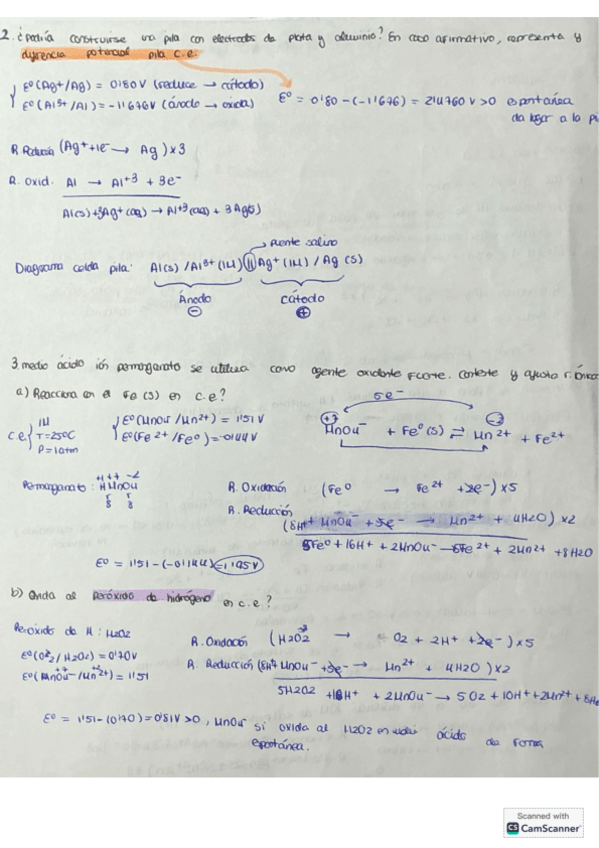 2. ¿Podría construirse una pila con electrodos de plata y aluminio? En caso afirmativo, representa y
diferencia potencial pila c.e.
E⁰(Ag⁺/Ag) = 0'80V (reduce → cátodo)
E⁰(Al³⁺/Al) = -1'1676V (ánodo → oxida)
E⁰ = 0'80 - (-1'1676) = 2'4760 V > 0 espontánea
da lugar a la pi
R. Reducción (Ag⁺ + 1e⁻ → Ag) x 3
R. Oxid. Al → Al⁺³ + 3e⁻
Al(s) + 3Ag⁺(aq) → Al⁺³(aq) + 3Ag(s)
Puente salino
Diagrama celda pila: Al(s) / Al³⁺ (1M) || Ag⁺ (1M) / Ag (s)
Ánodo Cátodo
⊖ ⊕
3. medio ácido ión permanganato se utiliza como agente oxidante fuerte. Conteste y ajuste r. iónica
a) Reacciona con el Fe (s) en c.e?
5e⁻
c.e. { 1M
T=25ºC
P=1atm
E⁰(MnO4⁻/Mn²⁺) = 1'51V
E⁰(Fe²⁺/Fe⁰) = -0'44V
+7 +2
MnO4⁻ + Fe⁰(s) ⇌ Mn²⁺ + Fe²⁺
Permanganato: HMnO4
+1 +7 -2
8 8
R. Oxidación (Fe⁰ → Fe²⁺ + 2e⁻) x 5
R. Reducción
(8H⁺ + MnO4⁻ + 5e⁻ → Mn²⁺ + 4H2O) x 2
5Fe⁰ + 16H⁺ + 2MnO4⁻ → 5Fe²⁺ + 2Mn²⁺ + 8H2O
E⁰ = 1'51 - (-0'44) = 1'95V
b) Oxida al peróxido de hidrógeno en c.e?
Peróxido de H: H2O2
E⁰(O2/H2O2) = 0'70V
E⁰(MnO4⁻/Mn²⁺) = 1'51
R. Oxidación (H2O2 → O2 + 2H⁺ + 2e⁻) x 5
R. Reducción (8H⁺ MnO4⁻ + 5e⁻ → Mn²⁺ + 4H2O) x 2
5H2O2 + 16H⁺ + 2MnO4⁻ → 5O2 + 10H⁺ + 2Mn²⁺ + 8H2
E⁰ = 1'51 - (0'70) = 0'81V > 0, MnO4⁻ si oxida al H2O2 en medio ácido de forma
espontánea.
Scanned with
CS CamScanner